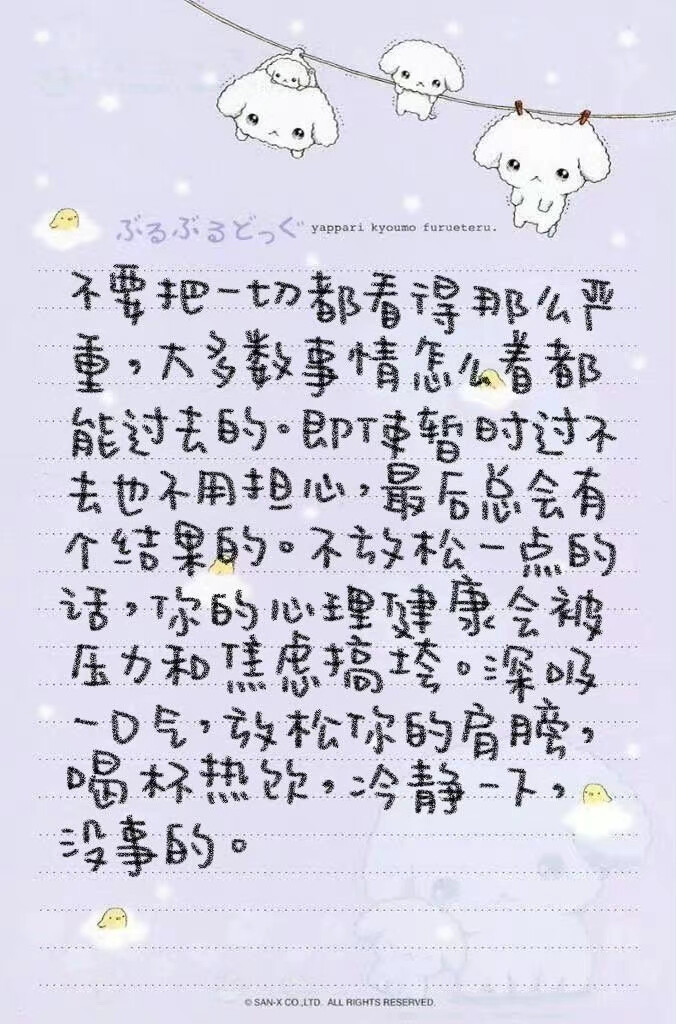 ぶるぶるどっぐ yappari kyoumo furueteru.
不要把一切都看得那么严
重，大多数事情怎么着都
能过去的。即使暂时过不
去也不用担心，最后总会有
个结果的。不放松一点的
话，你的心理健康会被
压力和焦虑搞垮。深吸
一口气，放松你的肩膀，
喝杯热饮，冷静一下，
没事的。
© SAN-X CO.,LTD. ALL RIGHTS RESERVED.